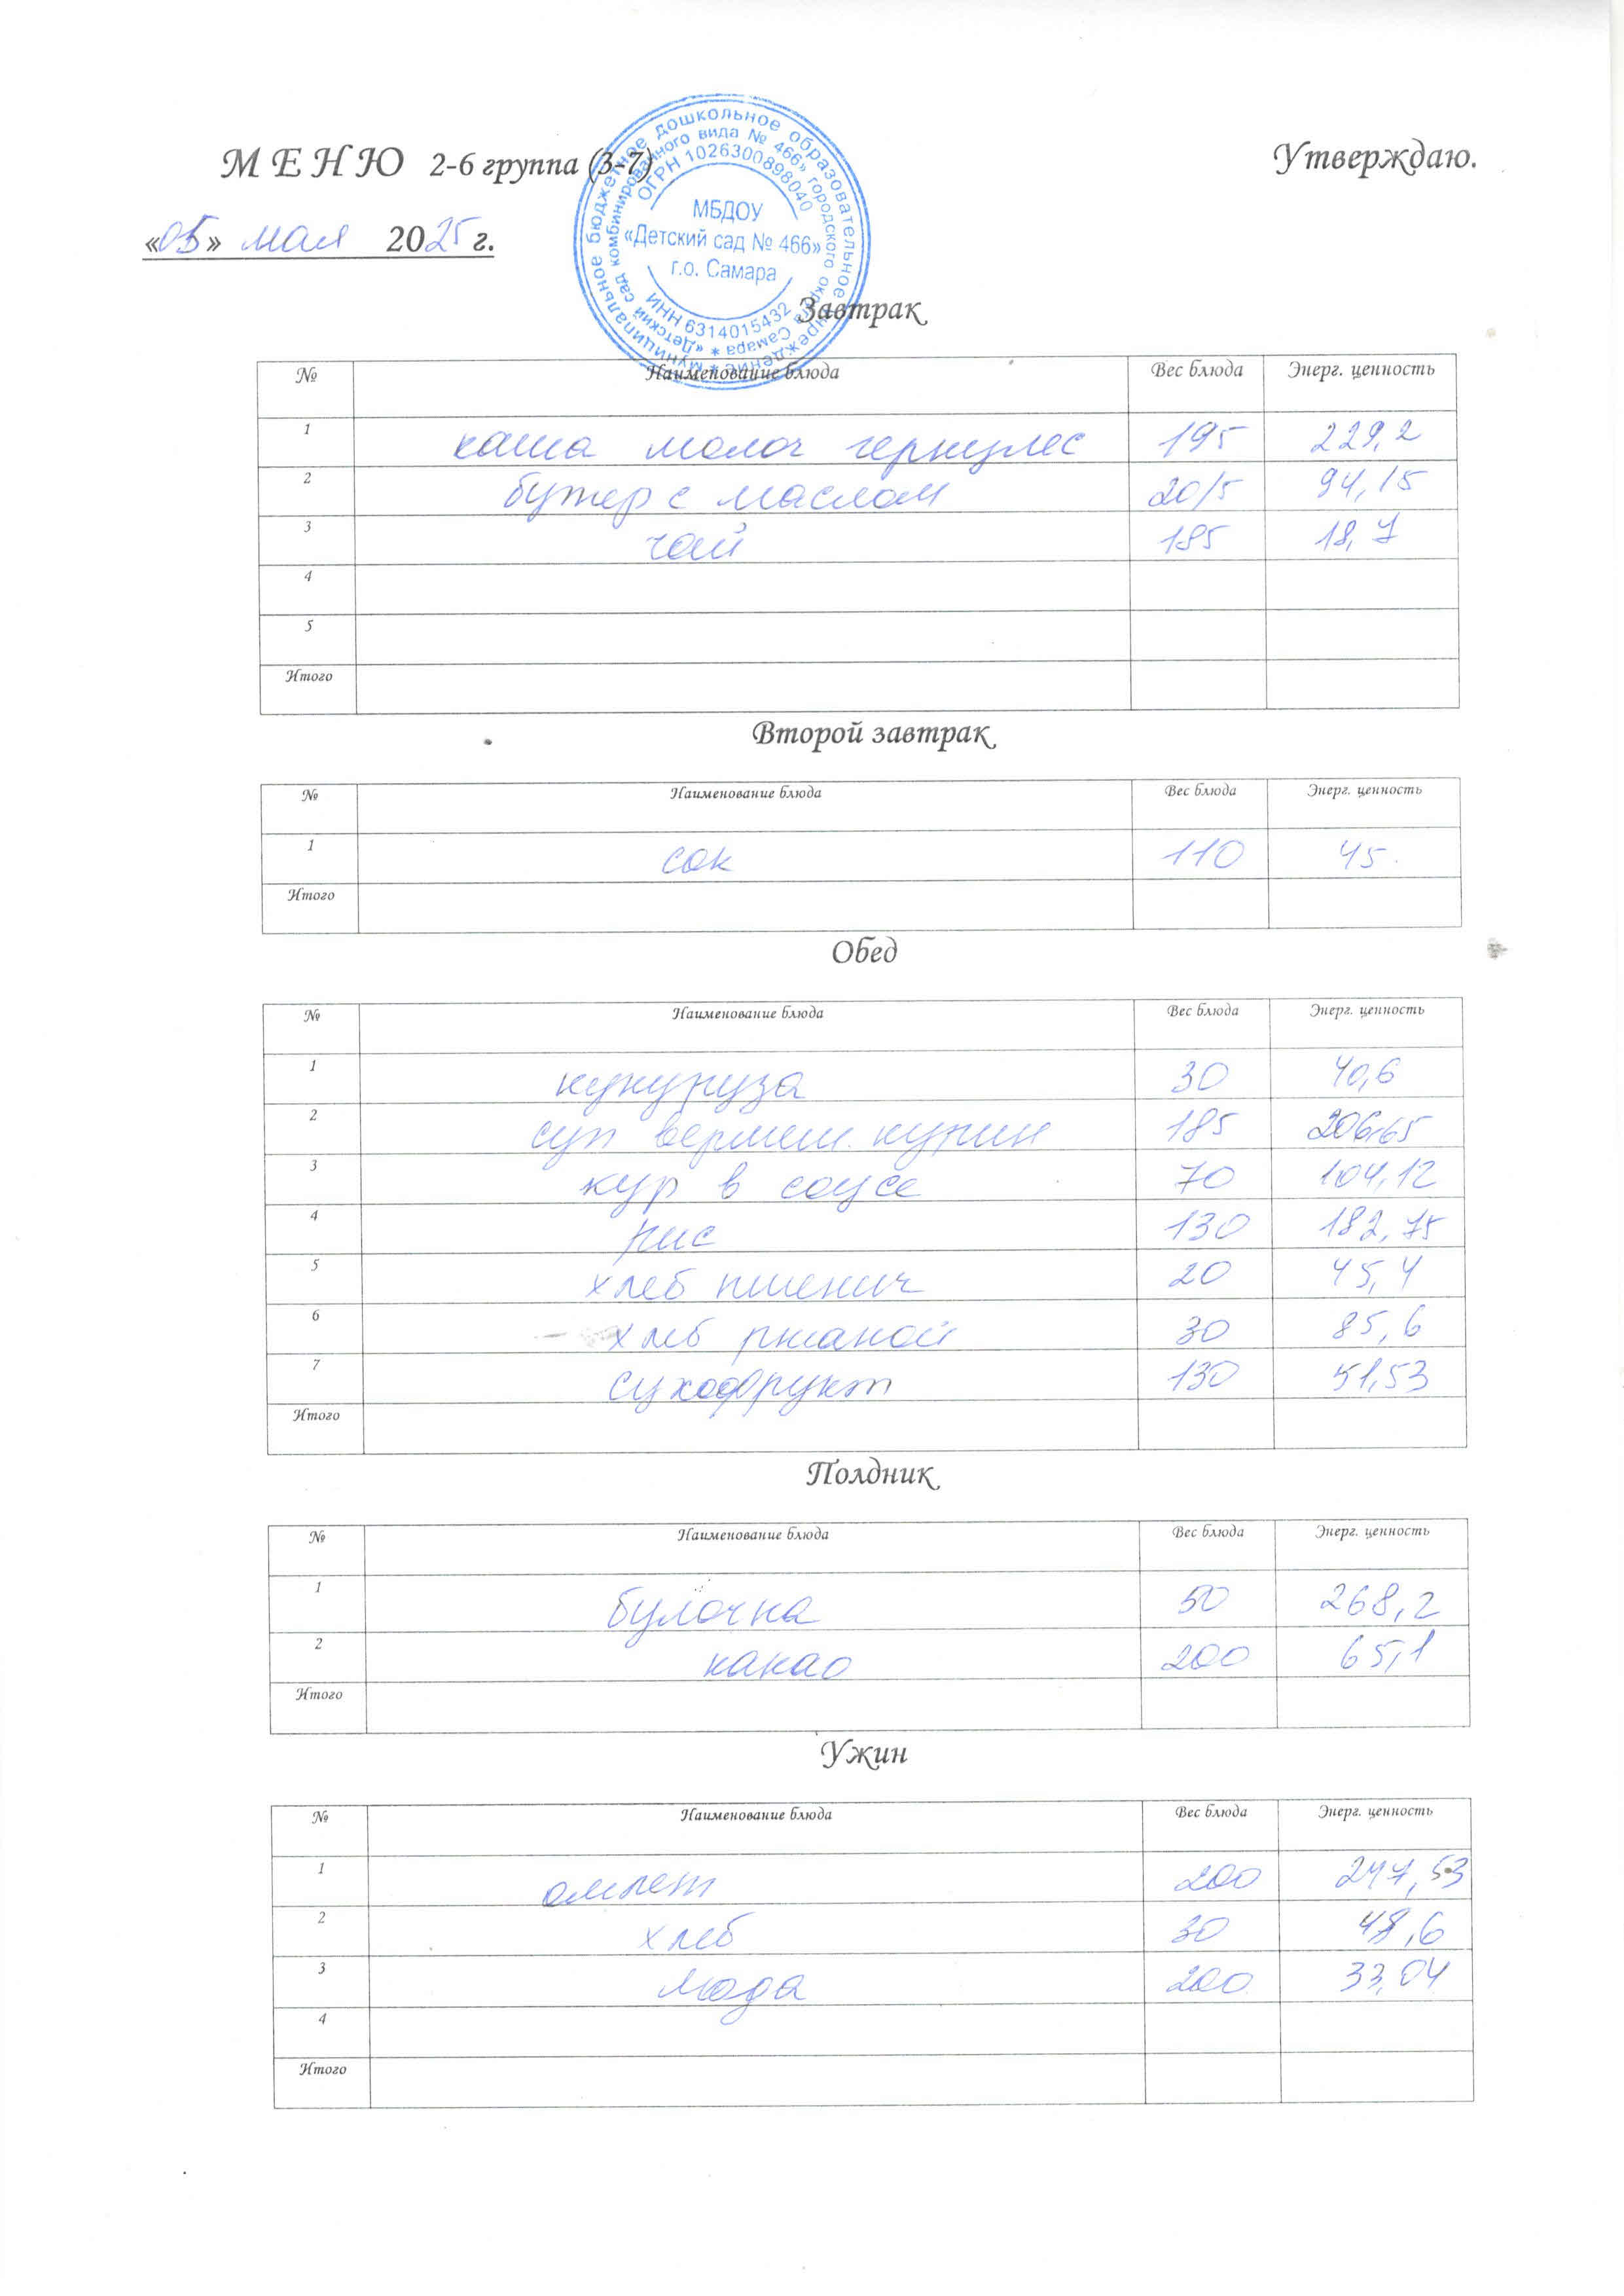 МЕНЮ 2-6 группа (3-7)
Утверждаю.
«05» мая 2025 г.
муниципальное бюджетное дошкольное образовательное учреждение
«Детский сад комбинированного вида № 466» городского округа Самара
ОГРН 1026300898040
МБДОУ
«Детский сад № 466»
г.о. Самара
ИНН 6314015432
Завтрак
№ Наименование блюда Вес блюда Энерг. ценность
1 каша молоч геркулес 195 229,2
2 бутер с маслом 20/5 94,15
3 чай 185 18,7
4
5
Итого
Второй завтрак
№ Наименование блюда Вес блюда Энерг. ценность
1 сок 110 45
Итого
Обед
№ Наименование блюда Вес блюда Энерг. ценность
1 кукуруза 30 40,6
2 суп вермиш. курин 185 206,65
3 кур в соусе 70 104,12
4 рис 130 182,75
5 хлеб пшенич 20 45,4
6 хлеб ржаной 30 85,6
7 сухофрукт 130 51,53
Итого
Полдник
№ Наименование блюда Вес блюда Энерг. ценность
1 булочка 50 268,2
2 какао 200 65,1
Итого
Ужин
№ Наименование блюда Вес блюда Энерг. ценность
1 омлет 200 247,53
2 хлеб 30 48,6
3 200 33,04
4
Итого